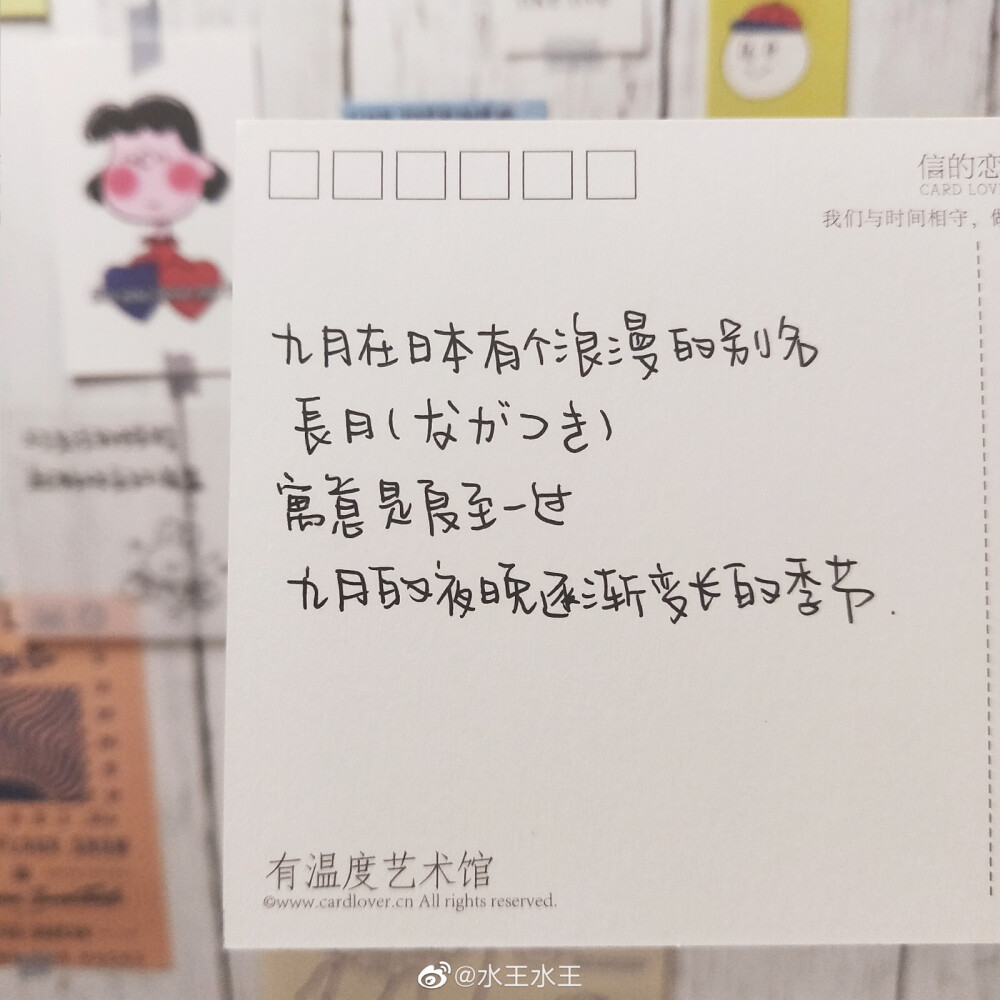 信的恋
CARD LOV
我们与时间相守，
九月在日本有个浪漫的别名
長月(ながつき)
寓意是夏至一过
九月的夜晚逐渐变长的季节.
有温度艺术馆
©www.cardlover.cn All rights reserved.
@水王水王